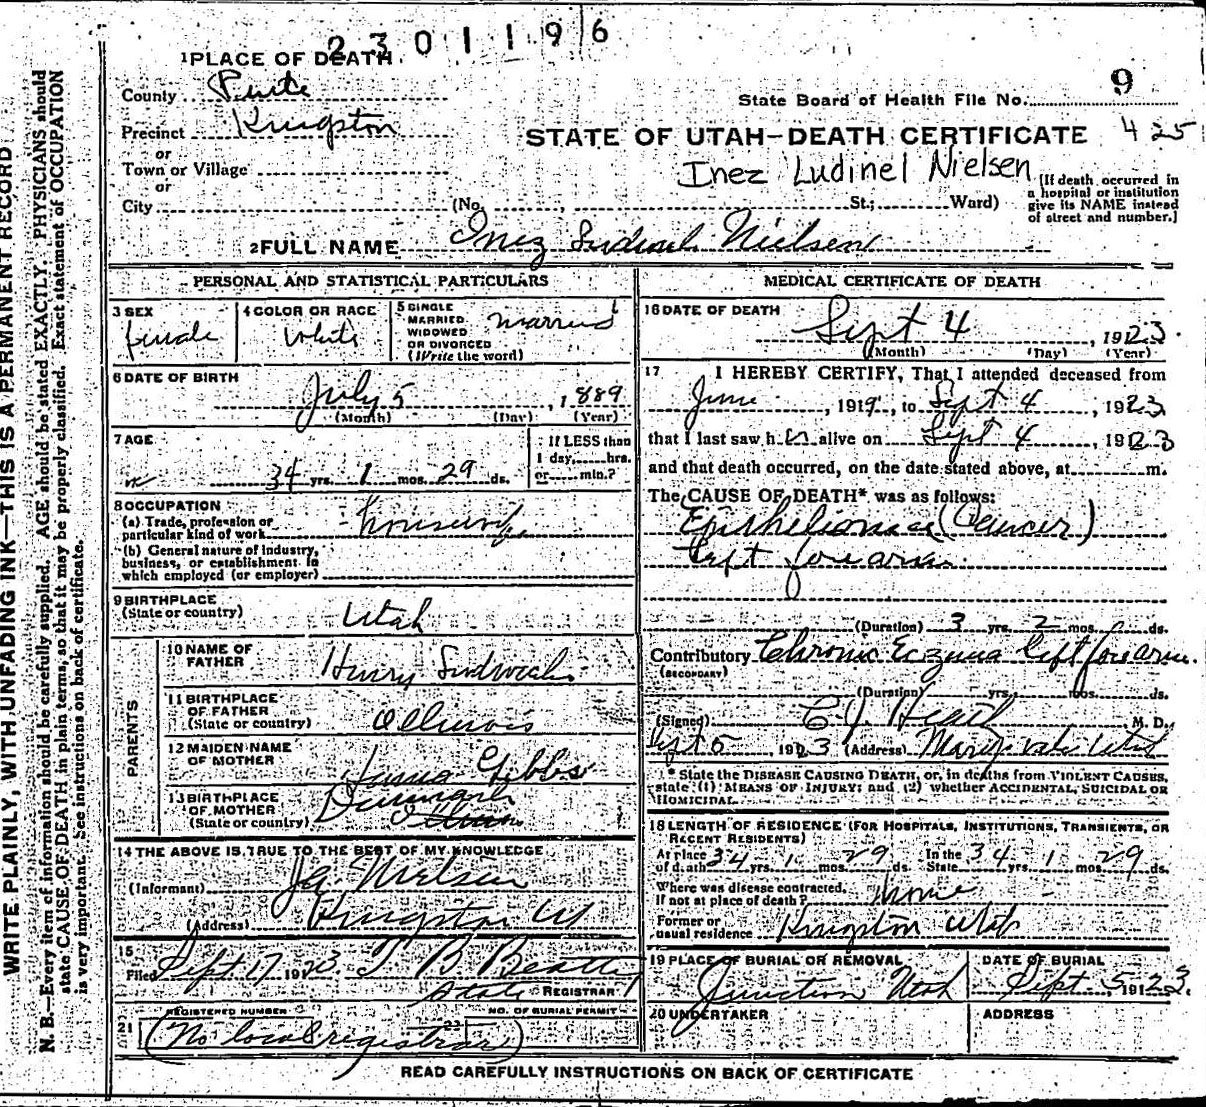 2301196
1 PLACE OF DEATH
County Piute
Precinct Kingston
or
Town or Village
or
City (No. , St.; Ward)
State Board of Health File No. 9
STATE OF UTAH—DEATH CERTIFICATE 425
Inez Ludinel Nielsen
[If death occurred in
a hospital or institution
give its NAME instead
of street and number.]
2 FULL NAME Inez Nielsen
PERSONAL AND STATISTICAL PARTICULARS
3 SEX
female
4 COLOR OR RACE
White
5 SINGLE
MARRIED
WIDOWED
OR DIVORCED
(Write the word)
married
6 DATE OF BIRTH
July 5, 1889
(Month) (Day) (Year)
7 AGE
34 yrs. 1 mos. 29 ds.
If LESS than
1 day, hrs.
or min.?
8 OCCUPATION
(a) Trade, profession or
particular kind of work housewife
(b) General nature of industry,
business, or establishment in
which employed (or employer)
9 BIRTHPLACE
(State or country) Utah
PARENTS
10 NAME OF
FATHER Henry
11 BIRTHPLACE
OF FATHER
(State or country) Illinois
12 MAIDEN NAME
OF MOTHER Gibbs
13 BIRTHPLACE
OF MOTHER
(State or country) Denmark
14 THE ABOVE IS TRUE TO THE BEST OF MY KNOWLEDGE
(Informant) Nielsen
(Address) Kingston Ut
15
Filed Sept. 17 1923 T B Beatty
State REGISTRAR
REGISTERED NUMBER NO. OF BURIAL PERMIT
21 (No local registrar) 22
MEDICAL CERTIFICATE OF DEATH
16 DATE OF DEATH
Sept 4, 1923
(Month) (Day) (Year)
17 I HEREBY CERTIFY, That I attended deceased from
June, 1919, to Sept 4, 1923
that I last saw her alive on Sept 4, 1923
and that death occurred, on the date stated above, at m.
The CAUSE OF DEATH* was as follows:
Epithelioma (Cancer)
left forearm
(Duration) 3 yrs. 2 mos. ds.
Contributory Chronic Eczema left forearm
(SECONDARY)
(Duration) yrs. mos. ds.
(Signed) M. D.
Sept 5, 1923 (Address) Marysvale Utah
* State the DISEASE CAUSING DEATH, or, in deaths from VIOLENT CAUSES,
state (1) MEANS OF INJURY; and (2) whether ACCIDENTAL, SUICIDAL OR
HOMICIDAL.
18 LENGTH OF RESIDENCE (FOR HOSPITALS, INSTITUTIONS, TRANSIENTS, OR
RECENT RESIDENTS)
At place of death 34 yrs. 1 mos. 29 ds. In the State 34 yrs. 1 mos. 29 ds.
Where was disease contracted,
If not at place of death? home
Former or
usual residence Kingston Utah
19 PLACE OF BURIAL OR REMOVAL
Junction Utah
DATE OF BURIAL
Sept. 5, 1923.
20 UNDERTAKER
ADDRESS
READ CAREFULLY INSTRUCTIONS ON BACK OF CERTIFICATE
WRITE PLAINLY, WITH UNFADING INK—THIS IS A PERMANENT RECORD
N. B.—Every item of information should be carefully supplied. AGE should be stated EXACTLY. PHYSICIANS should
state CAUSE OF DEATH in plain terms, so that it may be properly classified. Exact statement of OCCUPATION
is very important. See instructions on back of certificate.